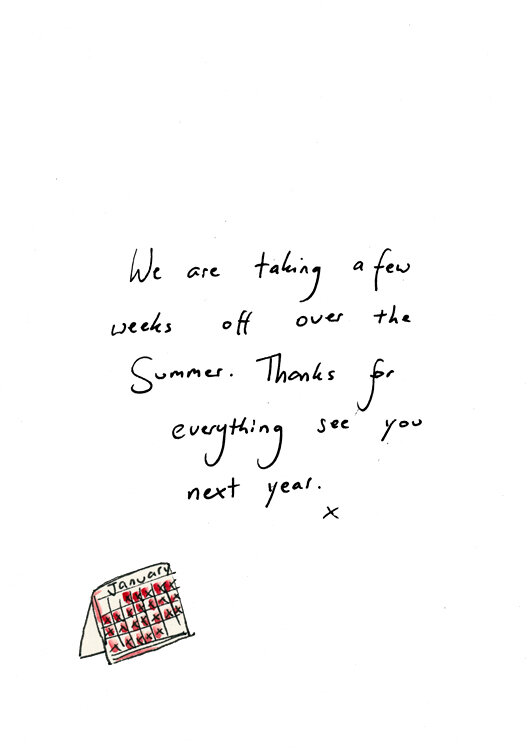 We are taking a few
weeks off over the
Summer. Thanks for
everything see you
next year.
x
January